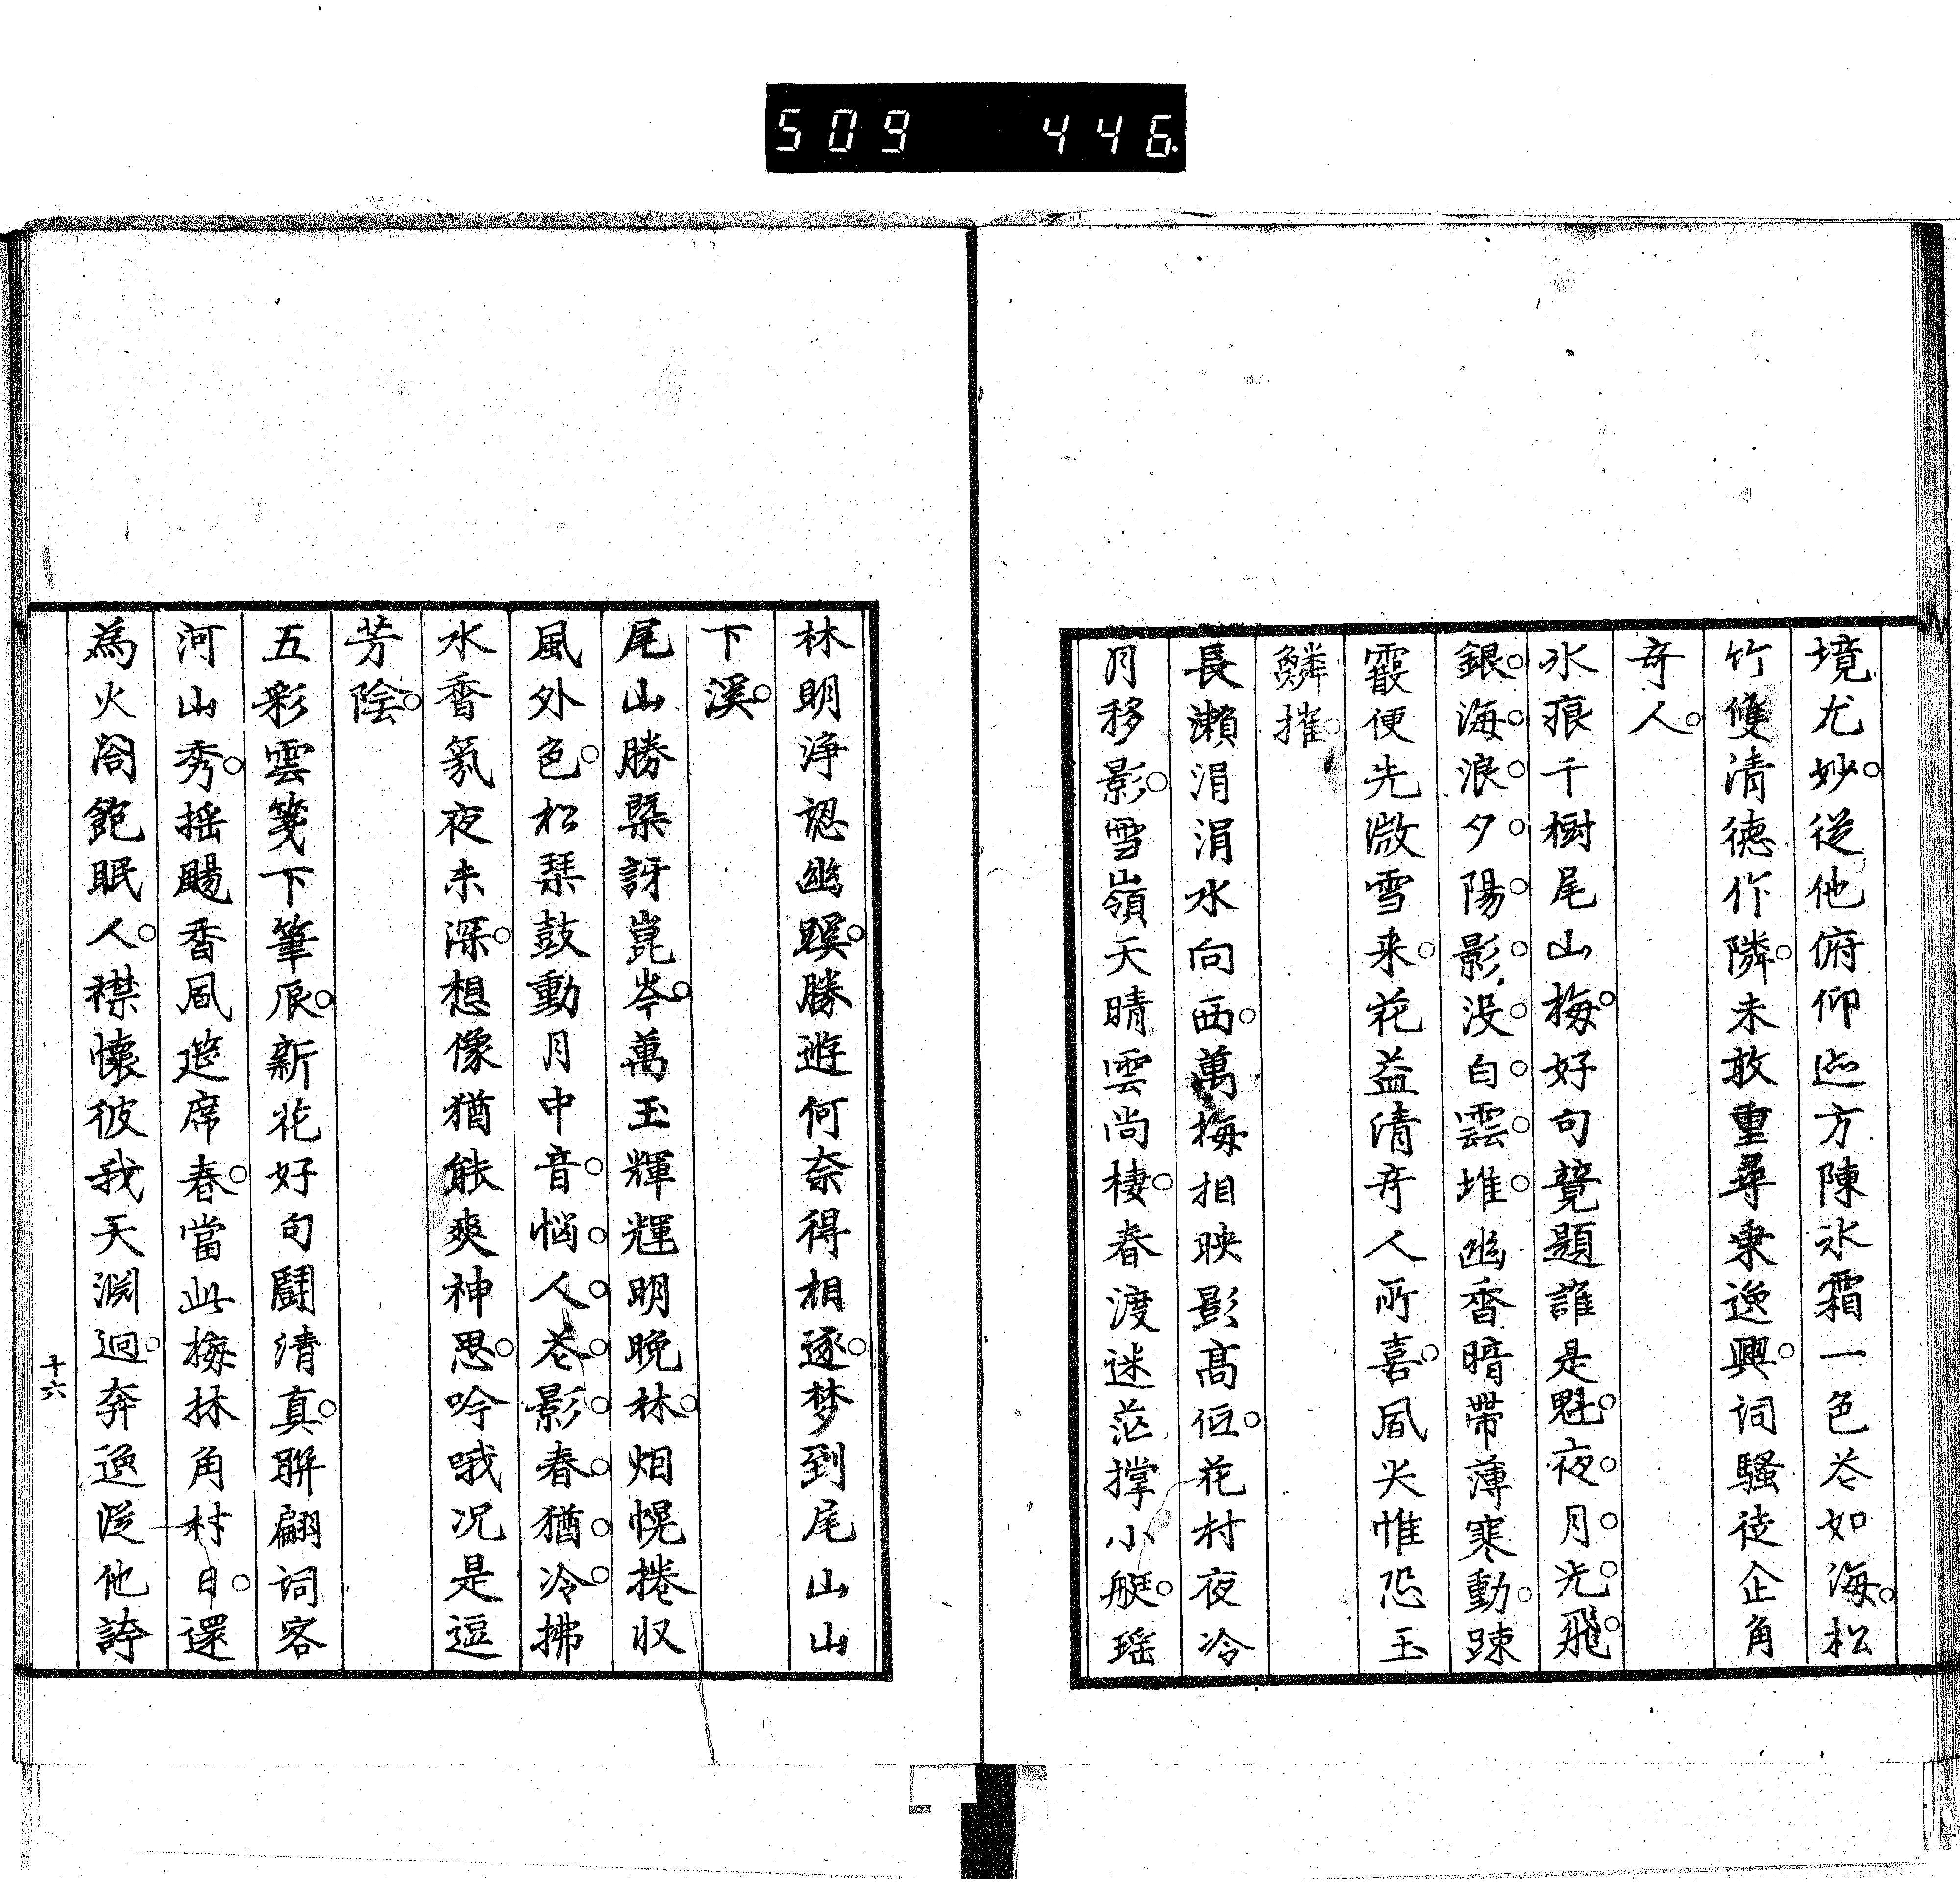 509 446.
境尤妙。從他俯仰迹方陳氷霜一色花如海。松
竹雙清德作隣。未敢重尋乗逸興。詞騷徒企角
奇人。
氷痕千樹尾山梅。好句競題誰是魁。夜。月。光。飛。
銀。海。浪。夕。陽。影。没。白。雲。堆。幽香暗帶薄寒動。踈
霞便先微雪来。花益清奇人所喜。風火惟恐玉
鱗摧。
長瀬涓涓水向西。萬梅相映影高低。花村夜冷
月移影。雪嶺天晴雲尚棲。春渡迷茫撑小艇。瑶
林明浄認幽蹊。勝遊何奈得相逐。梦到尾山山
下溪。
尾山勝槩訝崑岑。萬玉輝輝明晩林。烟幌捲収
風外色。松琹鼓動月中音。惱。人。花。影。春。猶。冷。拂
水香氣夜未深。想像猶能爽神思。吟哦况是逗
芳陰。
五彩雲箋下筆辰。新花好句鬪清真。聯翩词客
河山秀。摇颺香風筵席春。當此梅林角村日。還
為火閤飽眠人。襟懐彼我天淵迥。奔逸従他誇
十六